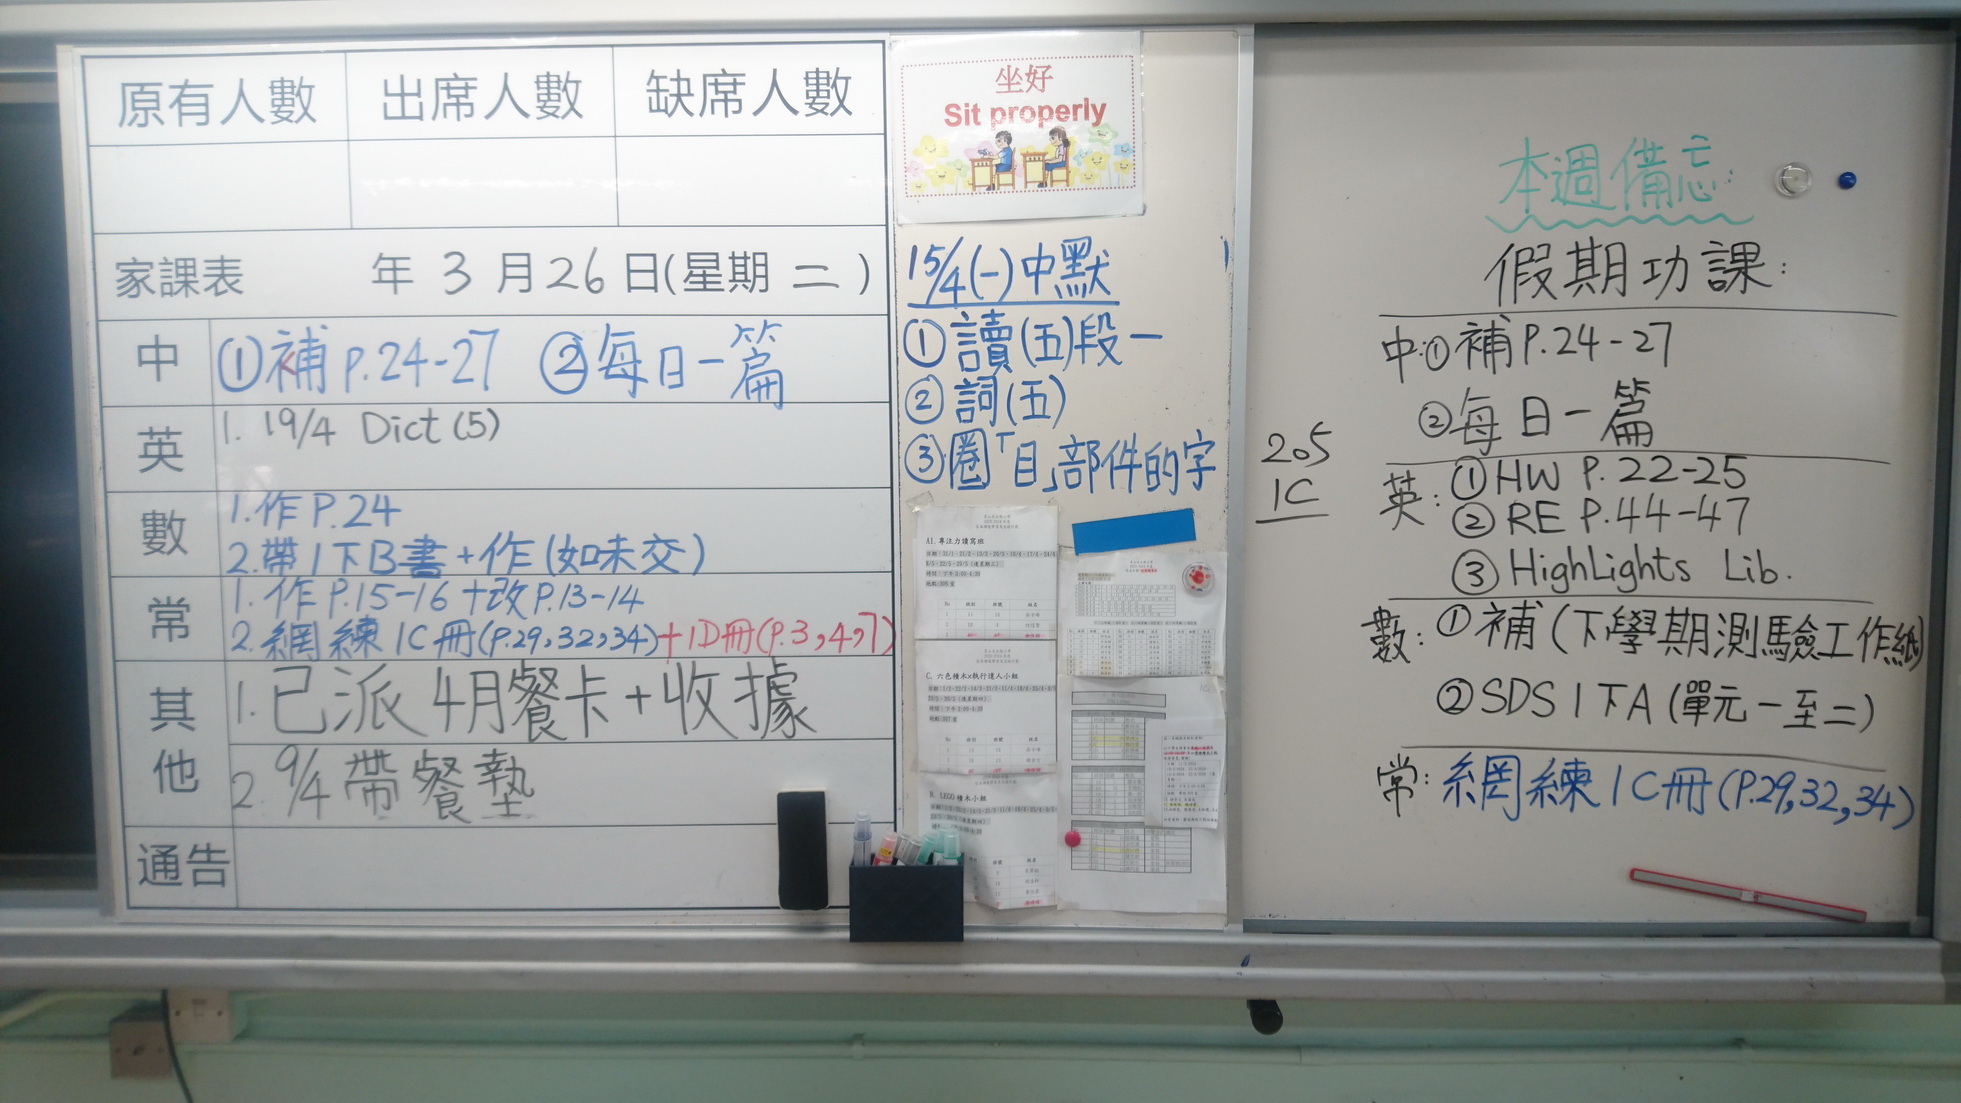 原有人數 出席人數 缺席人數
家課表 年 3 月 26 日(星期 二 )
中 ①補 P.24-27 ②每日一篇
英 1. 19/4 Dict (5)
數 1.作 P.24
2.帶1下B書+作(如未交)
常 1.作 P.15-16 +改P.13-14
2.網練1C冊(P.29,32,34)+1D冊(P.3,4,7)
其他 1.已派4月餐卡+收據
2. 9/4 帶餐墊
通告
坐好
Sit properly
15/4(一)中默
①讀(五)段一
②詞(五)
③圈「目」部件的字
A1. 專注力讀寫班
C. 六色積木x執行達人小組
B. LEGO 積木小組
205
1C
本週備忘:
假期功課:
中:①補P.24-27
②每日一篇
英:①HW P.22-25
②RE P.44-47
③HighLights Lib.
數:①補(下學期測驗工作紙)
②SDS1下A(單元一至二)
常:網練1C冊(P.29,32,34)